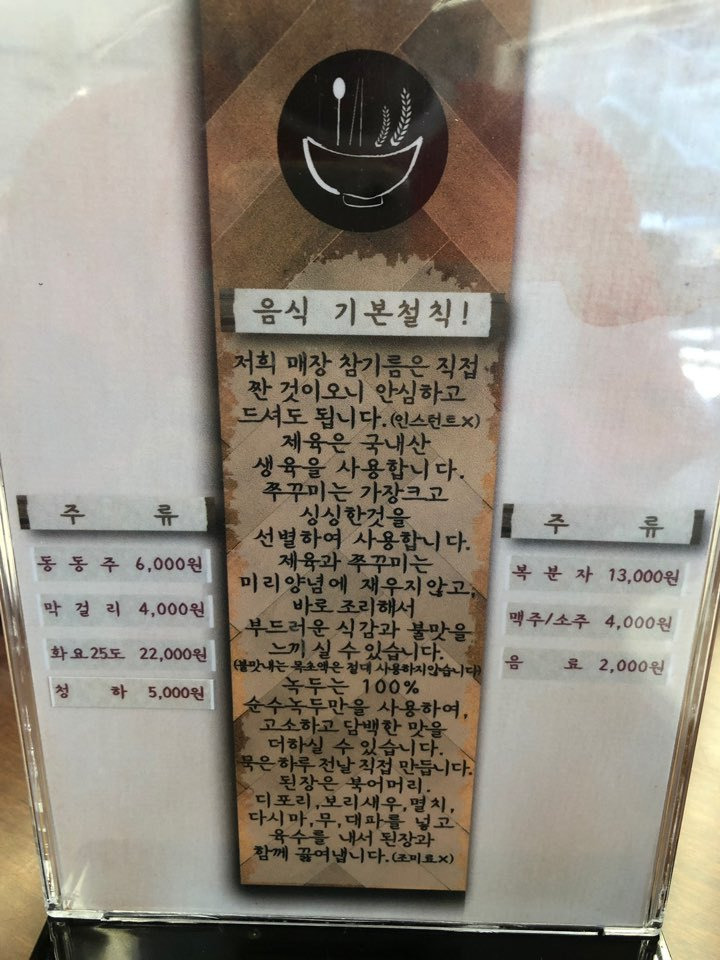 음식 기본철칙!
저희 매장 참기름은 직접
짠 것이오니 안심하고
드셔도 됩니다.(인스턴트×)
제육은 국내산
생육을 사용합니다.
쭈꾸미는 가장크고
싱싱한것을
선별하여 사용합니다.
제육과 쭈꾸미는
미리양념에 재우지않고,
바로 조리해서
부드러운 식감과 불맛을
느끼실 수 있습니다.
(불맛내는 목초액은 절대 사용하지않습니다)
녹두는 100%
순수녹두만을 사용하여,
고소하고 담백한 맛을
더하실 수 있습니다.
묵은 하루 전날 직접 만듭니다.
된장은 북어머리.
디포리,보리새우,멸치,
다시마,무,대파를 넣고
육수를 내서 된장과
함께 끓여냅니다.(조미료×)
주 류
동동주 6,000원
막걸리 4,000원
화요25도 22,000원
청 하 5,000원
주 류
복분자 13,000원
맥주/소주 4,000원
음 료 2,000원